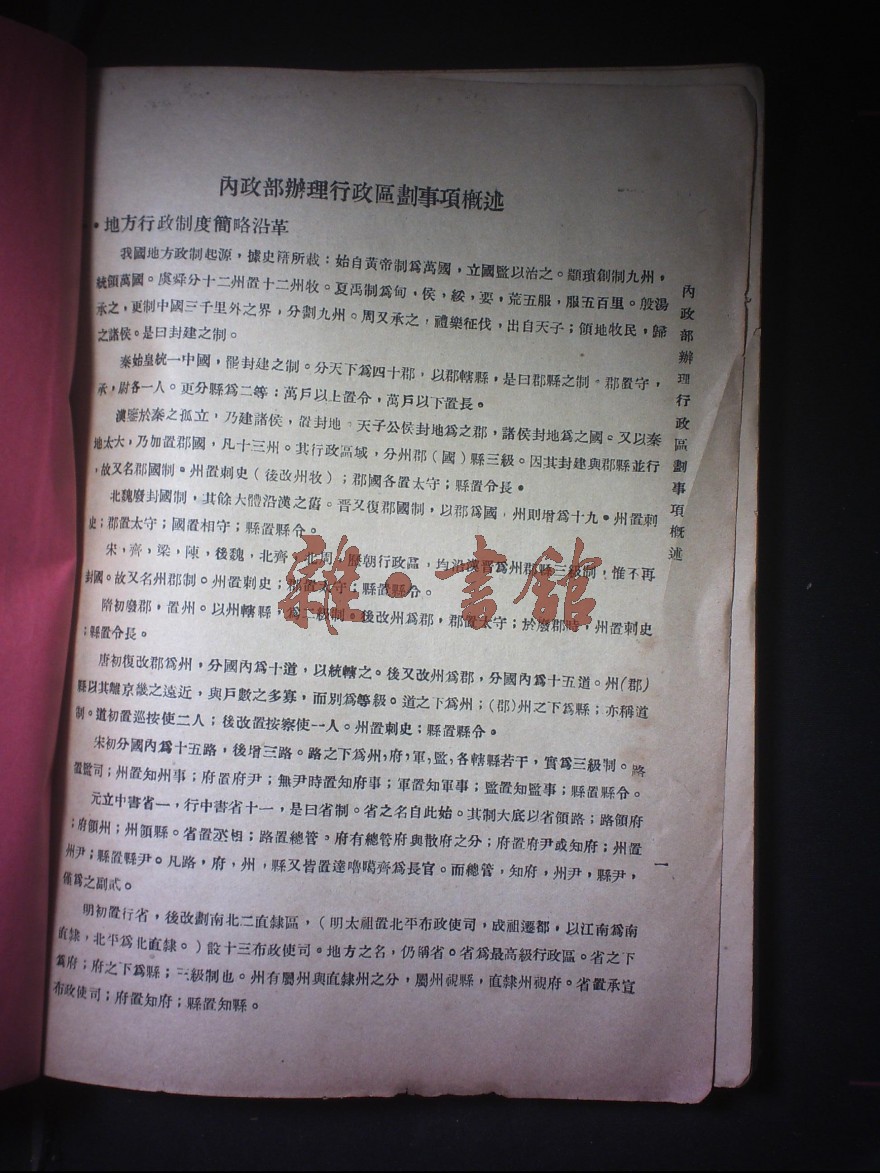 內政部辦理行政區劃事項概述
・地方行政制度簡略沿革
我國地方政制起源，據史籍所載：始自黃帝制爲萬國，立國監以治之。顓頊創制九州，
統領萬國。虞舜分十二州置十二州牧。夏禹制爲甸，侯，綏，要，荒五服，服五百里。殷湯
承之，更制中國三千里外之界，分劃九州。周又承之，禮樂征伐，出自天子；領地牧民，歸
之諸侯。是曰封建之制。
秦始皇統一中國，罷封建之制。分天下爲四十郡，以郡轄縣，是曰郡縣之制。郡置守，
承，尉各一人。更分縣爲二等：萬戶以上置令，萬戶以下置長。
漢鑒於秦之孤立，乃建諸侯，置封地。天子公侯封地爲之郡，諸侯封地爲之國。又以秦
地太大，乃加置郡國，凡十三州。其行政區域，分州郡（國）縣三級。因其封建與郡縣並行
，故又名郡國制。州置刺史（後改州牧）；郡國各置太守；縣置令長。
北魏廢封國制，其餘大體沿漢之舊。晉又復郡國制，以郡爲國，州則增爲十九。州置刺
史；郡置太守；國置相守；縣置縣令。
宋，齊，梁，陳，後魏，北齊，北周，歷朝行政區，均沿漢晉爲州郡縣三級制，惟不再
封國。故又名州郡制。州置刺史；郡置太守；縣置縣令。
隋初廢郡，置州。以州轄縣，爲二級制。後改州爲郡，郡置太守；於廢郡時，州置刺史
；縣置令長。
唐初復改郡爲州，分國內爲十道，以統轄之。後又改州爲郡，分國內爲十五道。州(郡)
縣以其離京畿之遠近，與戶數之多寡，而別爲等級。道之下爲州；(郡)州之下爲縣；亦稱道
制。道初置巡按使二人；後改置按察使一人。州置刺史；縣置縣令。
宋初分國內爲十五路，後增三路。路之下爲州，府，軍，監，各轄縣若干，實爲三級制。路
置監司；州置知州事；府置府尹；無尹時置知府事；軍置知軍事；監置知監事；縣置縣令。
元立中書省一，行中書省十一，是曰省制。省之名自此始。其制大底以省領路；路領府
；府領州；州領縣。省置丞相；路置總管。府有總管府與散府之分；府置府尹或知府；州置
州尹；縣置縣尹。凡路，府，州，縣又皆置達嚕噶齊爲長官。而總管，知府，州尹，縣尹，
僅爲之副貳。
明初置行省，後改劃南北二直隸區，（明太祖置北平布政使司，成祖遷都，以江南爲南
直隸，北平爲北直隸。）設十三布政使司。地方之名，仍稱省。省爲最高級行政區。省之下
爲府；府之下爲縣；三級制也。州有屬州與直隸州之分，屬州視縣，直隸州視府。省置承宣
布政使司；府置知府；縣置知縣。
內政部辦理行政區劃事項概述
一
雜・書館